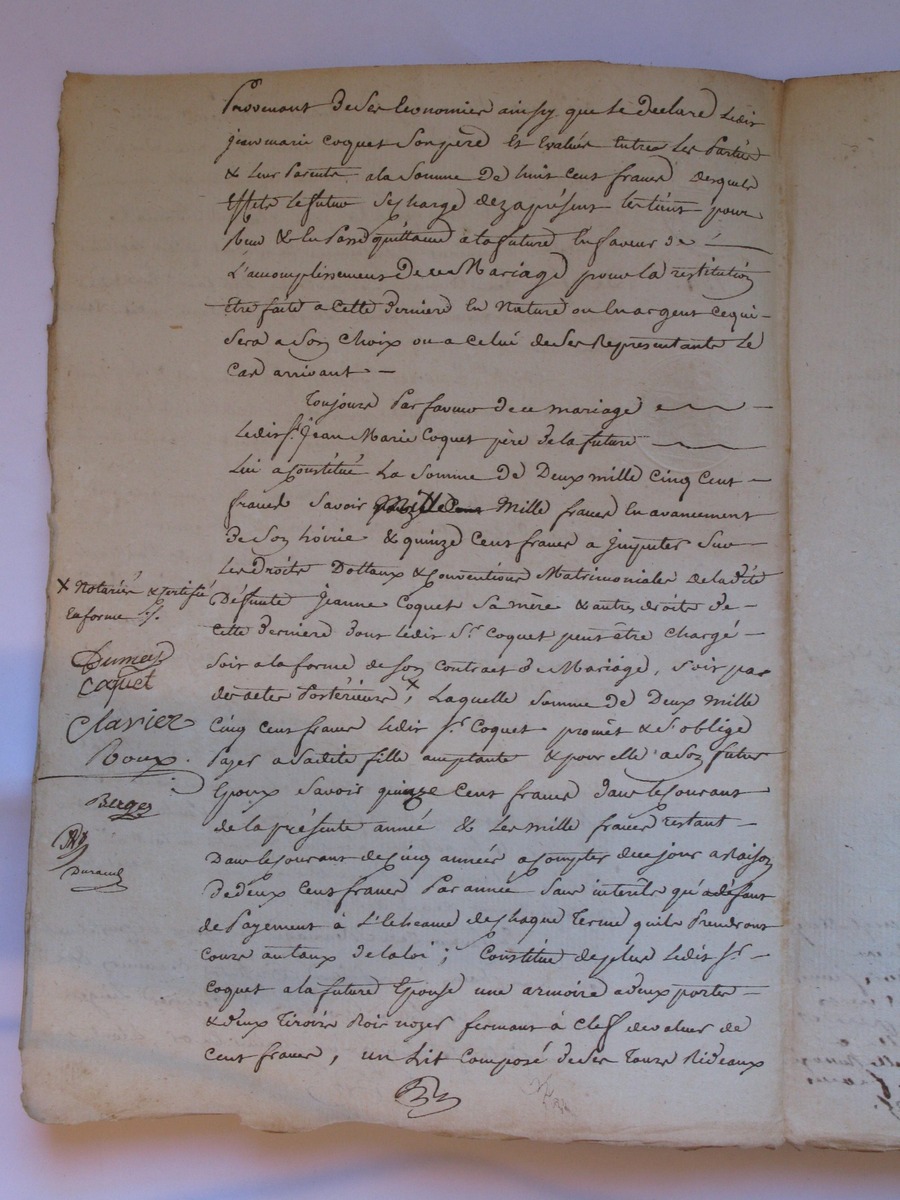 Provenant de ses Economies ainsy que le declare ledit
jean marie coquet son père et Evalués Entres Les Parties
& leur Parents a la Somme de huit cent francs desquels
Effets le futur se charge dez aprésent les tient pour
& En Passe quittance a la future En faveur de
L'accomplissement De ce Mariage pour la restitution
Etre faite a cette derniere En nature ou En argent ce qui
sera a son choix ou a celui de ses Représentants Le
Cas arrivant
Toujours Par faveur de ce mariage
Ledit Sr. Jean Marie Coquet père de la future
Lui a Constitué La somme de Deux mille cinq cent
francs savoir Mille francs En avancement
de son hoirie & quinze Cent francs a jmputer sur
Les Droits Dottaux & Conventions Matrimoniales de la dite
Défunte Jeanne Coquet sa mère & autres droits de
cette derniere dont ledit Sr. Coquet peut être chargé
soit a la forme de son Contract de Mariage, soit par
des actes Postérieurs x, Laquelle somme de Deux mille
cinq cent francs ledit Sr. Coquet promêt & s'oblige
Payer a sadite fille acceptante & pour elle a son futur
Epoux Savoir quinze Cent francs dans le Courant
de la présente année & Les mille francs restant
Dans le Courant de cinq années a Compter de ce jour a Raison
de deux Cent francs Par année Sans interêts qu'a défaut
de Payement à L'Echeance de chaque Terme qu'ils Prendront
cours au taux de la loi ; Constitue de plus Ledit Sr.
Coquet a la future Epouse une armoire a deux portes
& deux Tiroirs Bois noyer fermant à clef de valeur de
cent francs, un Lit Composé de ses Tours Rideaux
x Notariés & certifié
En forme
Dumas
Coquet
Clavier
Roux
Berger
Durand